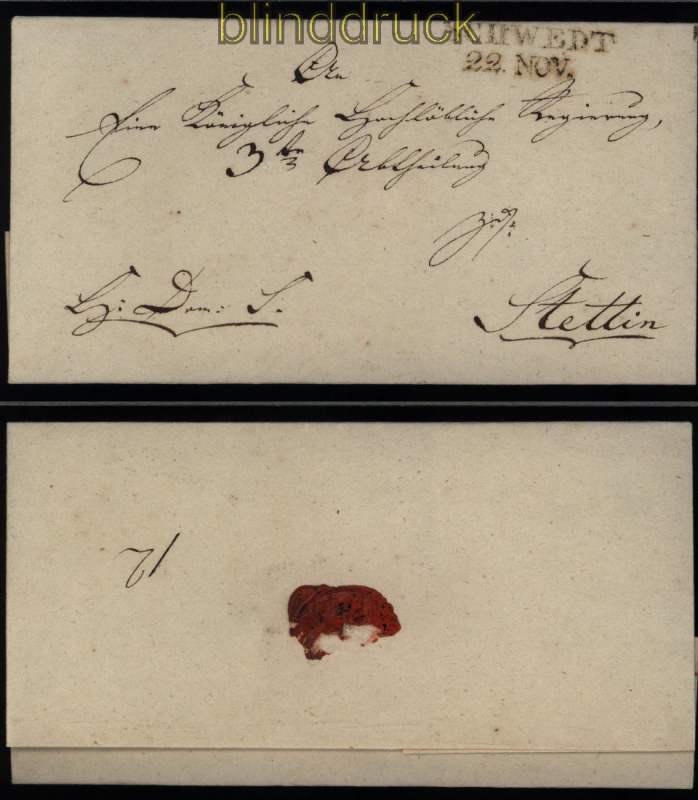 blinddruck
SCHWEDT
22. NOV.
An
Eine Königliche Hochlöbliche Regierung,
3te Abtheilung
zu
H: Dom: S.
Stettin